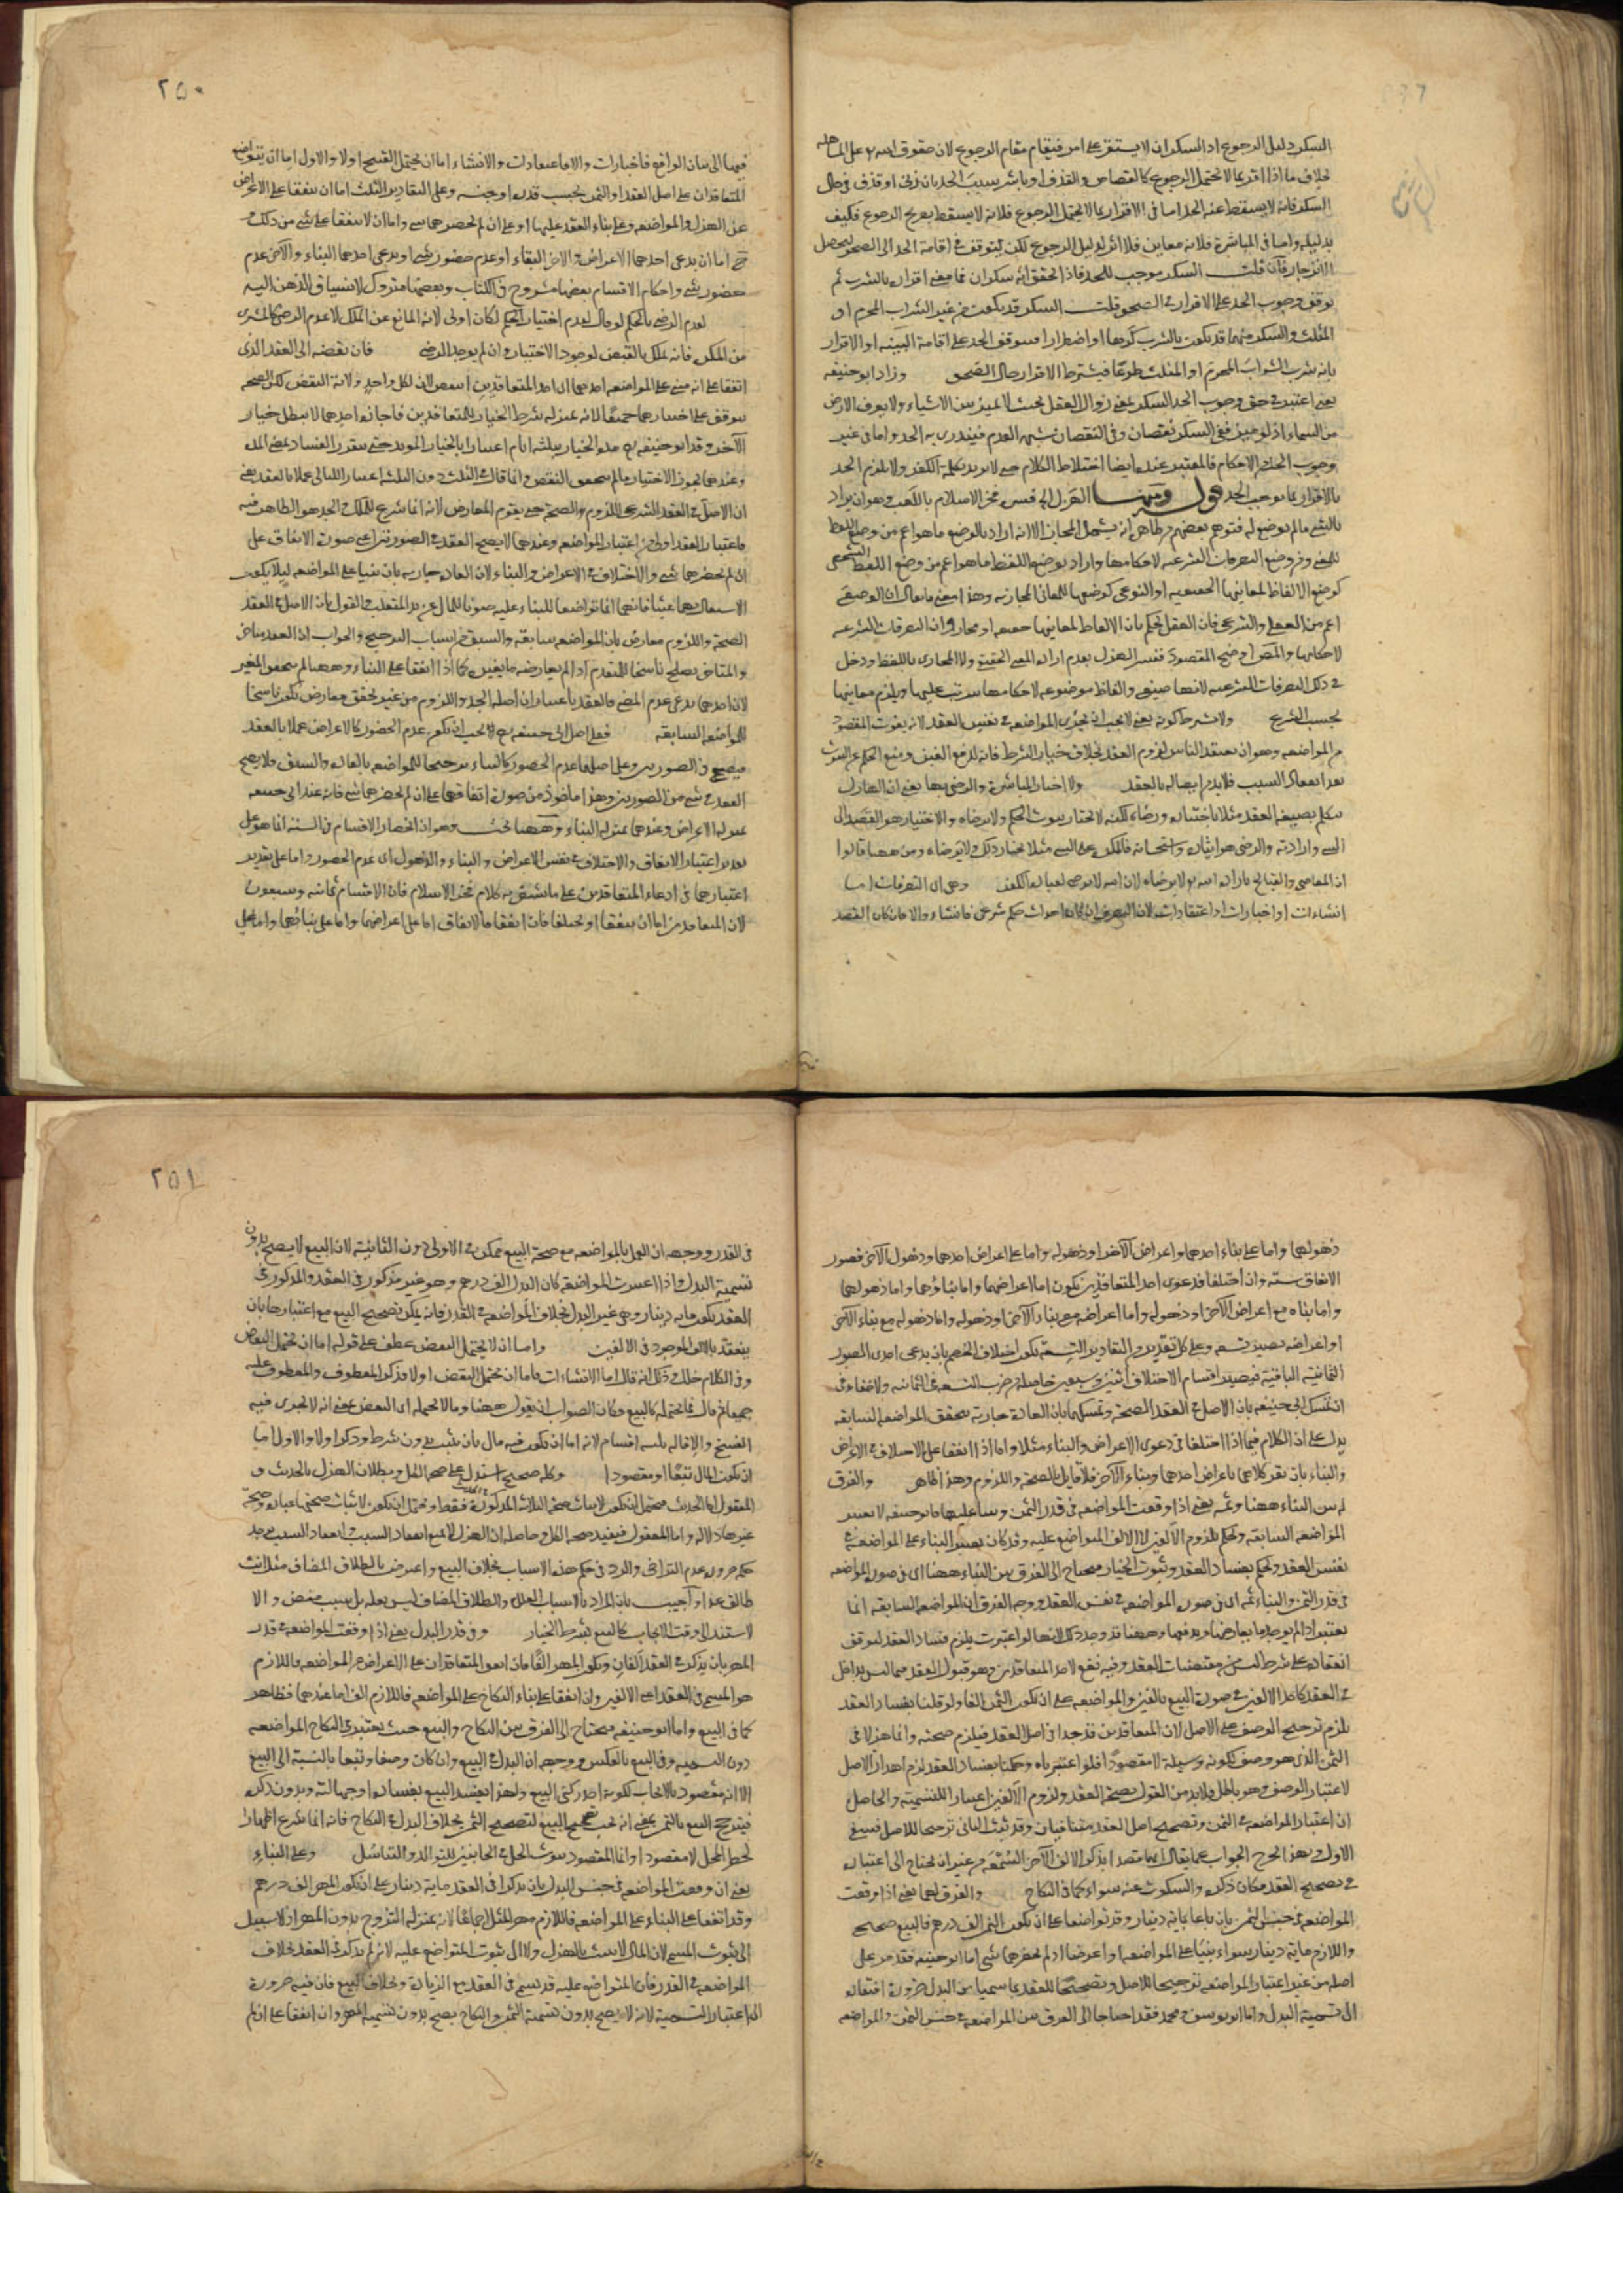 السكر دليل الرجوع اذ السكران لا يستقر على امر فيقام مقام الرجوع لان حقوق الله
بخلاف ما اذا اقر بما لا يحتمل الرجوع كالقصاص والقذف او باشر سبب الحد بان زنى او قذف في حال
السكر فانه لا يسقط عنه الحد اما في الاقرار بما لا يحتمل الرجوع فلانه لا يسقط بصريح الرجوع فكيف
بدليله واما في المباشرة فلانه معاين فلا اثر لدليل الرجوع لكن يتوقف في اقامة الحد الى الصحو ليحصل
الانزجار فان قلت السكر موجب للحد فاذا تحقق انه سكران فما معنى اقراره بالشرب ثم
توقف وجوب الحد على الاقرار في الصحو قلت السكر قد يكون من غير الشراب المحرم او
المثلث والسكر منهما قد يكون بالشرب كرها او اضطرارا فيتوقف الحد على اقامة البينه او الاقرار
بانه شرب الشراب المحرم او المثلث طوعا فيشترط الاقرار حال الصحو وزاد ابو حنيفه
يعنى اعتبر في حق وجوب الحد السكر بمعنى زوال العقل بحيث لا يميز بين الاشياء ولا يعرف الارض
من السماء اذ لو ميز ففي السكر نقصان وفي النقصان شبهة العدم فيندرى به الحد واما في غير
وجوب الحد من الاحكام فالمعتبر عنده ايضا اختلاط الكلام حتى لا يرتد بكلمة الكفر ولا يلزم الحد
بالاقرار بما يوجب الحد قوله ومنها الهزل الخ فسره فخر الاسلام باللعب وهو ان يراد
بالشئ ما لم يوضع له فتوهم بعضهم وظاهر انه يشمل المجاز الا انه اراد بالوضع ما هو اعم من وضع اللفظ
للمعنى ومن وضع التصرفات الشرعيه لاحكامها واراد بوضع اللفظ ما هو اعم من وضع اللفظ الشخصى
كوضع الالفاظ لمعانيها الحقيقيه او النوعى كوضعها للمعانى المجازيه وهذا معنى ما يقال ان الوضع
اعم من العقلى والشرعى فان العقل يحكم بان الالفاظ لمعانيها حقيقه او مجازا وان التصرفات الشرعيه
لاحكامها والمص اوضح المقصود ففسر الهزل بعدم ارادة المعنى الحقيقى ولا المجازى باللفظ ودخل
في ذلك التصرفات الشرعيه لانها صيغ والفاظ موضوعه لاحكامها يترتب عليها ويلزم معانيها
بحسب الشرع ولا يشترط كونه يعنى لا يجب ان يجرى المواضعه في نفس العقد لانه يفوت المقصود
من المواضعه وهو ان يعتقد الناس لزوم العقد بخلاف خيار الشرط فانه لدفع الغبن ومنع الحكم عن الثبوت
بعد انعقاد السبب فلا بد من اتصاله بالعقد ولا اختيار المباشرة والرضى بها يعنى ان الهازل
يتكلم بصيغه العقد مثلا باختياره ورضاه لكنه لا يختار ثبوت الحكم ولا يرضاه والاختيار هو القصد الى
الشئ وارادته والرضى هو ايثاره واستحسانه فالمكره على الشئ مثلا يختار ذلك ولا يرضاه ومن ههنا قالوا
ان المعاصي والقبائح بارادة الله تع لا برضاه لان الله لا يرضى لعباده الكفر وهى اى التصرفات اما
انشاءات او اخبارات او اعتقادات لان التصرف ان كان احداث حكم شرعى فانشاء والا فان كان القصد
٢٥٠
فيها الى بيان الواقع فاخبارات والا فاعتقادات والانشاء اما ان يحتمل الفسخ او لا والاول اما ان يتواضع
المتعاقدان على اصل العقد او الثمن بحسب قدره او جنسه وعلى التقادير الثلث اما ان يتفقا على الاعراض
عن الهزل والمواضعه وعلى بناء العقد عليها او على ان لم يحضرهما شئ واما ان لا يتفقا على شئ من ذلك
ح اما ان يدعى احدهما الاعراض والاخر البناء او عدم حضور شئ او يدعى احدهما البناء والآخر عدم
حضور شئ واحكام الاقسام بعضها مشروح في الكتاب وبعضها متروك لانسياق الذهن اليه
لعدم الرضى بالحكم لو قال لعدم اختيار الحكم لكان اولى لانه المانع عن الملك لا عدم الرضى كالمشترى
من المكره فانه يملك بالقبض لوجود الاختيار وان لم يوجد الرضى فان نقضه اى العقد الذى
اتفقا على انه مبنى على المواضعه احدهما اى احد المتعاقدين انتقض لان لكل واحد ولاية النقض لكن الصحه
يتوقف على اختيارهما جميعا لانه بمنزله شرط الخيار للمتعاقدين فاجازة احدهما لا يبطل خيار
الآخر وقدر ابو حنيفه مدة الخيار بثلثة ايام اعتبارا بالخيار المؤبد حتى يتقرر الفساد بمضى المدة
وعندهما يجوز الاختيار ما لم يتحقق النقض وانما قال في الثلث دون الثلثه اعتبارا لليالى عملا بالعقد يعنى
ان الاصل في العقد الشرعى اللزوم والصحة حتى يقوم المعارض لانه انما شرع للملك والجد هو الظاهر فيه
فاعتبار العقد اولى من اعتبار المواضعه وعندهما لا يصح العقد في الصورتين اى صورة الاتفاق على
ان لم يحضرهما شئ والاختلاف في الاعراض والبناء لان العادة جاريه بان يبنيا على المواضعه ليلا يكون
الاشتغال بهما عبثا فانهما انما تواضعا للبناء عليه صونا للمال عن يد المتغلب فالقول بان الاصل في العقد
الصحة واللزوم معارض بان المواضعه سابقه والسبق من اسباب الترجيح والجواب ان العقد متاخر
والمتاخر يصلح ناسخا للمتقدم اذا لم يعارضه ما يغيره كما اذا اتفقا على البناء وههنا لم يتحقق المغير
لان احدهما يدعى عدم المضى فالعقد باعتبار ان اصله الجد واللزوم من غير تحقق معارض تكون ناسخا
للمواضعه السابقه فعلى اصل ابى حنيفه يجب ان يكون عدم الحضور كالاعراض عملا بالعقد
فيصح في الصورتين وعلى اصلهما عدم الحضور كالبناء ترجيحا للمواضعه بالعادة والسبق فلا يصح
العقد في شئ من الصورتين وهذا ماخوذ من صورة اتفاقهما على ان لم يحضرهما شئ فانه عند ابى حنيفه
بمنزله الاعراض وعندهما بمنزله البناء وههنا بحث وهو ان انحصار الاقسام في الستة انما هو على
تقدير اعتبار الاتفاق والاختلاف في نفس الاعراض والبناء والذهول اى عدم الحضور واما على تقدير
اعتبارهما في ادعاء المتعاقدين على ما يشعر به كلام فخر الاسلام فان الاقسام ثمانيه وسبعون
لان المتعاقدين اما ان يتفقا او يختلفا فان اتفقا فالاتفاق اما على اعراضهما واما على بنائهما واما على
ذهولهما واما على بناء احدهما واعراض الآخر او ذهوله واما على اعراض احدهما وذهول الآخر فصور
الاتفاق سته وان اختلفا فدعوى احد المتعاقدين تكون اما اعراضهما واما بناؤهما واما ذهولهما
واما بناه مع اعراض الآخر او ذهوله واما اعراضه مع بناء الآخر او ذهوله واما ذهوله مع بناء الآخر
او اعراضه يصير تسعه وعلى كل تقدير من التقادير التسعه تكون اختلاف الخصم بان يدعى احدى الصور
الثمانية الباقية فيصير اقسام الاختلاف اثنين وسبعين حاصلة من ضرب التسعه في الثمانيه ولا خفاء في
ان تمسك ابى حنيفه بان الاصل في العقد الصحة وتمسكهما بان العادة جارية بتحقق المواضعه السابقه
يدل على ان الكلام فيما اذا اختلفا في دعوى الاعراض والبناء مثلا واما اذا اتفقا على الاختلاف في الاعراض
والبناء بان يقر كلاهما باعراض احدهما وبناء الآخر فلا قايل بالصحة واللزوم وهذا ظاهر والفرق
له بين البناء ههنا وثمه يعنى اذا وقعت المواضعه في قدر الثمن وبنيا عليها فابو حنيفه لا يعتبر
المواضعه السابقه ويحكم بلزوم الالفين لا الالف المتواضع عليه وقد كان يعتبر البناء على المواضعه في
نفس العقد ويحكم بفساد العقد وثبوت الخيار فيحتاج الى الفرق بين البناء ههنا اى في صورة المواضعه
في قدر الثمن والبناء ثمه اى في صورة المواضعه في نفس العقد ووجه الفرق ان المواضعه السابقه انما
يعتبر اذا لم يوجد ما يعارضها ويدفعها وههنا قد وجد ذلك لانها لو اعتبرت يلزم فساد العقد لتوقف
انعقاده على شرط ليس من مقتضيات العقد وفيه نفع لاحد المتعاقدين وهو قبول العقد فيما ليس بداخل
في العقد كاحد الالفين في صورة البيع بالفين والمواضعه على ان يكون الثمن الفا ولو قلنا بفساد العقد
يلزم ترجيح الوصف على الاصل لان المتعاقدين قد جدا في اصل العقد فيلزم صحته وانما هزلا في
الثمن الذى هو وصف لكونه وسيلة لا مقصودا فلو اعتبرناه وحكمنا بفساد العقد لزم اهدار الاصل
لاعتبار الوصف وهو باطل فلا بد من القول بصحة العقد ولزوم الالفين اعتبارا للتسمية والحاصل
ان اعتبار المواضعه في الثمن وتصحيح اصل العقد متنافيان وقد ثبت الثانى ترجيحا للاصل فينتفى
الاول وبهذا خرج الجواب عما يقال انهما قصدا بذكر الالف الآخر السمعة من غير ان يحتاج الى اعتباره
في تصحيح العقد فكان ذكره والسكوت عنه سواء كما في النكاح والفرق لهما يعنى اذا وقعت
المواضعه في جنس الثمن بان باعا بماية دينار وقد تواضعا على ان يكون الثمن الف درهم فالبيع صحيح
واللازم ماية دينار سواء بنيا على المواضعه او اعرضا او لم يحضرهما شئ اما ابو حنيفه فقد مر على
اصله من غير اعتبار المواضعه ترجيحا للاصل وتصحيحا للعقد بما سميا من البدل ضرورة افتقاره
الى تسمية البدل واما ابو يوسف ومحمد فقد احتاجا الى الفرق بين المواضعه في جنس الثمن والمواضعه
٢٥١
في القدر ووجهه ان العمل بالمواضعه مع صحة البيع ممكن في الاولى دون الثانية لان البيع لا يصح بدون
تسمية البدل واذا اعتبرت المواضعة كان البدل الف درهم وهو غير مذكور في العقد والمذكور في
العقد تكون مايه دينار وهى غير البدل بخلاف المواضعه في القدر فانه يمكن تصحيح البيع مع اعتبارها بان
ينعقد بالالف الموجود في الالفين واما ان لا يحتمل النقض عطف على قوله اما ان يحتمل النقض
وفى الكلام خلل وذلك انه قال اما الانشاءات فاما ان يحتمل النقض او لا وذكر المعطوف والمعطوف عليه
جميعا ثم قال فما يحتمله كالبيع فكان الصواب ان يقول ههنا وما لا يحتمله اى النقض بمعنى انه لا يجرى فيه
الفسخ والاقاله ثلثه اقسام لانه اما ان يكون فيه مال بان يثبت بدون شرط وذكر او لا والاول اما
ان يكون المال تبعا او مقصودا وكله صحيح استدل على صحه الكل وبطلان الهزل بالحديث و
المعقول اما الحديث فيحتمل ان يكون لاثبات صحة الثلاث المذكورة فقط ويحتمل ان يكون لاثبات صحتها عباره وصحة
غيرها دلاله واما المعقول فيفيد صحه الكل وحاصله ان الهزل لا يمنع انعقاد السبب وانعقاد السبب يوجد
حكمه ضرورة عدم التراخى والرد في حكم هذه الاسباب بخلاف البيع واعترض بالطلاق المضاف مثل انت
طالق غدا واجيب بان المراد بالاسباب العلل والطلاق المضاف ليس بعله بل سبب مفض والا
لاستند الى وقت الايجاب كالبيع بشرط الخيار وفى قدر البدل يعنى اذا وقعت المواضعه في قدر
المهر بان يذكر في العقد الفان ويكون المهر الفا فان اتفق المتعاقدان على الاعراض من المواضعه فاللازم
هو المسمى في العقد اعنى الالفين وان اتفقا على بناء النكاح على المواضعه فاللازم الف اما عندهما فظاهر
كما في البيع واما ابو حنيفه فيحتاج الى الفرق بين النكاح والبيع حيث يعتبر في النكاح المواضعه
دون التسميه وفى البيع بالعكس ووجهه ان البدل في البيع وان كان وصفا وتبعا بالنسبة الى البيع
الا انه مقصود بالايجاب لكونه احد ركنى البيع ولهذا يفسد البيع بفساده او جهالته وبدون ذكره
فيترجح البيع بالثمن بمعنى انه يجب تصحيح البيع لتصحيح الثمن بخلاف البدل في النكاح فانه انما شرع اظهارا
لخطر المحل لا مقصودا وانما المقصود ثبوت الحل في الجانبين للتوالد والتناسل وعلى البناء
يعنى ان وقعت المواضعه في جنس البدل بان يذكرا في العقد ماية دينار على ان يكون المهر الف درهم
وقد اتفقا على البناء على المواضعه فاللازم مهر المثل اجماعا لانه بمنزله التزوج بدون المهر اذ لا سبيل
الى ثبوت المسمى لان المال لا يثبت بالهزل ولا الى ثبوت المتواضع عليه لانه لم يذكر في العقد بخلاف
المواضعه في القدر فان المتواضع عليه قد سمى في العقد مع الزيادة وبخلاف البيع فان فيه ضرورة
الى اعتبار التسمية لانه لا يصح بدون تسمية الثمن والنكاح يصح بدون تسمية المهر وان اتفقا على ان لم